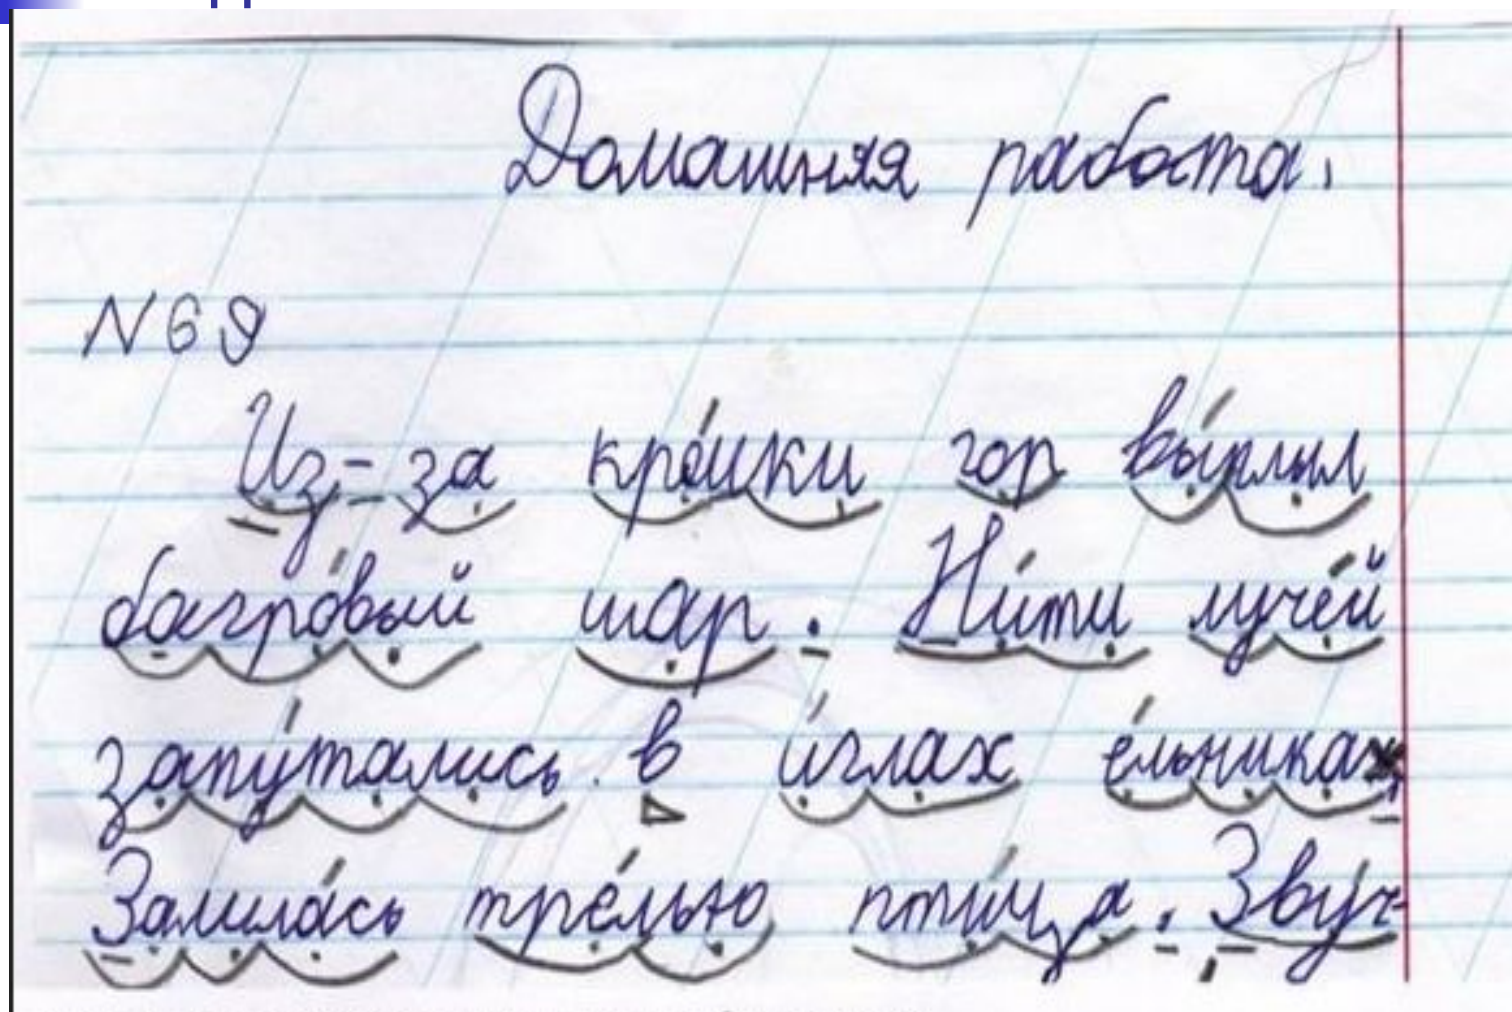 Домашняя работа.
N 69
Из-за кро́мки гор вы́плыл
багро́вый шар. Ни́ти луче́й
запу́тались в и́глах е́льника.
Залила́сь тре́лью пти́ца. Зву́ч-